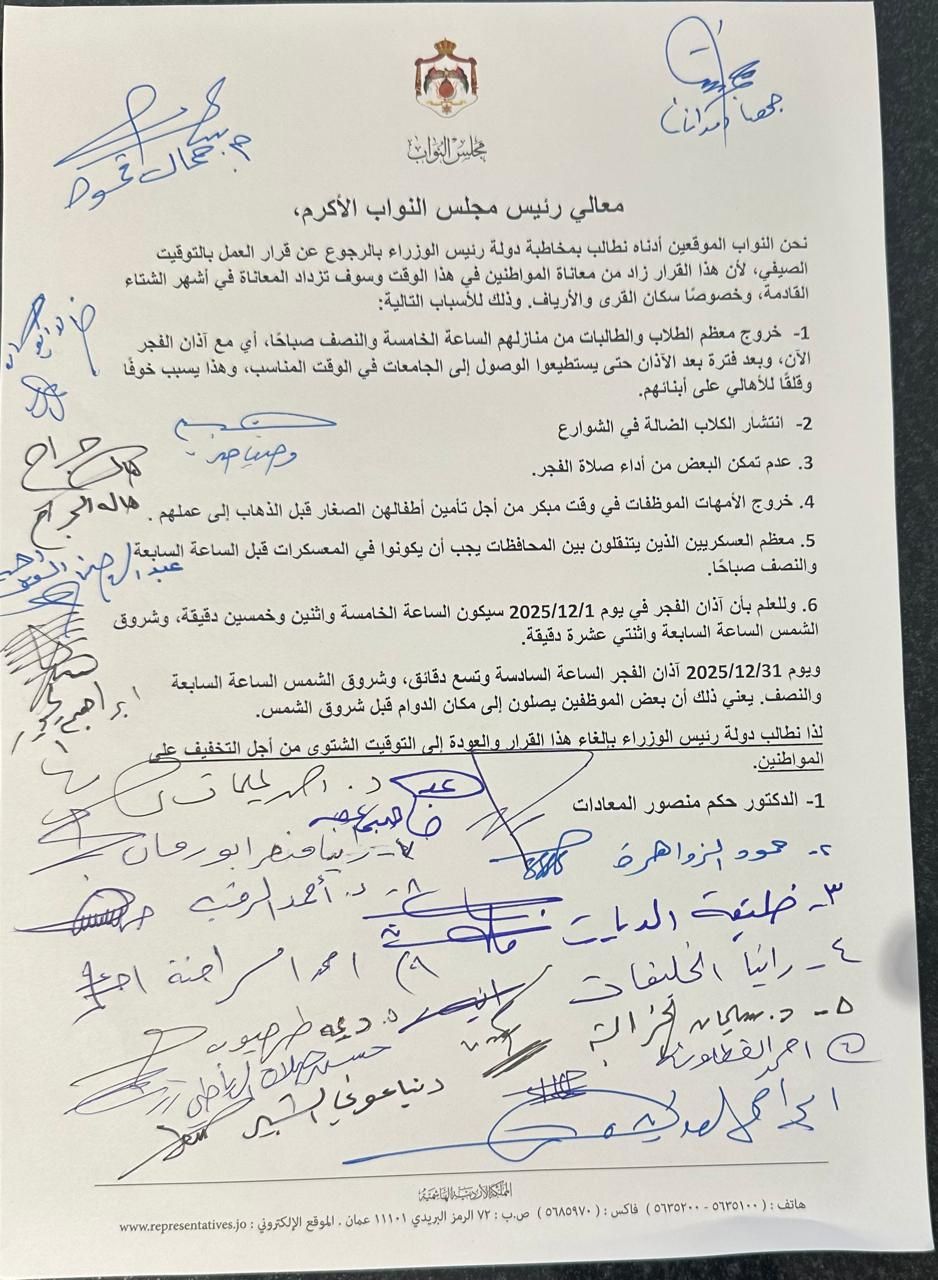 مجلس النواب
جمال قموه
معالي رئيس مجلس النواب الأكرم،
نحن النواب الموقعين أدناه نطالب بمخاطبة دولة رئيس الوزراء بالرجوع عن قرار العمل بالتوقيت
الصيفي، لأن هذا القرار زاد من معاناة المواطنين في هذا الوقت وسوف تزداد المعاناة في أشهر الشتاء
القادمة، وخصوصًا سكان القرى والأرياف. وذلك للأسباب التالية:
1- خروج معظم الطلاب والطالبات من منازلهم الساعة الخامسة والنصف صباحًا، أي مع آذان الفجر
الآن، وبعد فترة بعد الآذان حتى يستطيعوا الوصول إلى الجامعات في الوقت المناسب، وهذا يسبب خوفًا
وقلقًا للأهالي على أبنائهم.
2- انتشار الكلاب الضالة في الشوارع
3. عدم تمكن البعض من أداء صلاة الفجر.
4. خروج الأمهات الموظفات في وقت مبكر من أجل تأمين أطفالهن الصغار قبل الذهاب إلى عملهم .
5. معظم العسكريين الذين يتنقلون بين المحافظات يجب أن يكونوا في المعسكرات قبل الساعة السابعة
والنصف صباحًا.
6. وللعلم بأن آذان الفجر في يوم 2025/12/1 سيكون الساعة الخامسة واثنين وخمسين دقيقة، وشروق
الشمس الساعة السابعة واثنتي عشرة دقيقة.
ويوم 2025/12/31 آذان الفجر الساعة السادسة وتسع دقائق، وشروق الشمس الساعة السابعة
والنصف. يعني ذلك أن بعض الموظفين يصلون إلى مكان الدوام قبل شروق الشمس.
لذا نطالب دولة رئيس الوزراء بإلغاء هذا القرار والعودة إلى التوقيت الشتوي من أجل التخفيف على
المواطنين.
1- الدكتور حكم منصور المعادات
٢- حمود الزواهرة
٣- خليفة الديات
٤- رانيا الخليفات
٥- د. سليمان الخزاعلة
٦ احمد القطاونة
٧- رانيا منصر ابو رمان
٨- د. أحمد الرقب
هاله الجراح
دنيا عوني البشير
المملكة الأردنية الهاشمية
هاتف : ( ٥٦٣٥١٠٠ - ٥٦٣٥٢٠٠ ) فاكس : ( ٥٦٨٥٩٧٠ ) ص.ب : ٧٢ الرمز البريدي ١١١٠١ عمان . الموقع الإلكتروني : www.representatives.jo